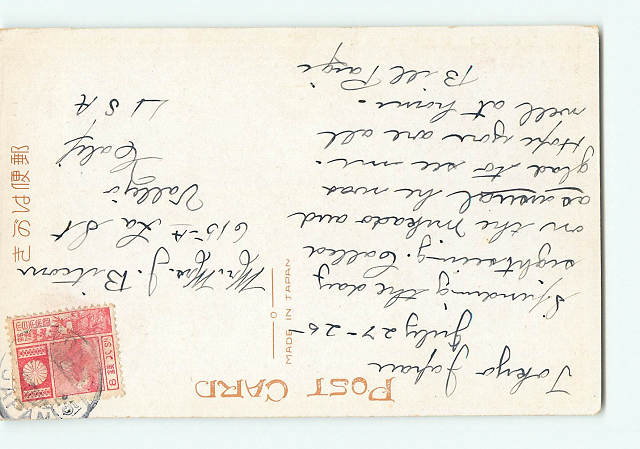 POST CARD
Tokyo Japan
July 27-26
Spending the day
sightseeing. Called
on the Mikado and
as usual he was
glad to see me.
Hope you are all
well at home.
Bill
MADE IN JAPAN
Mr. Mrs. J.
615-A La St
Vallejo
Calif
U S A
郵便はがき
大日本帝國郵便